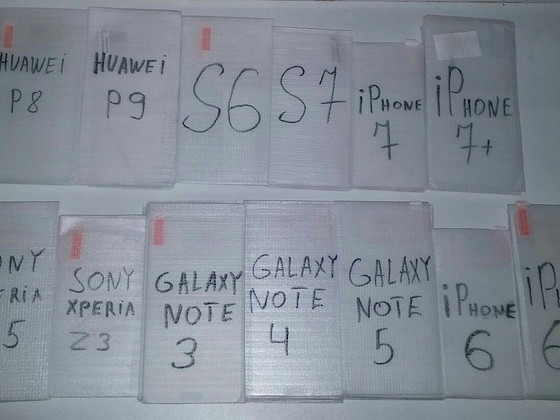 HUAWEi
P8
HUAWEi
P9
S6
S7
iPHONE
7
iPHONE
7+
ONY
ERiA
5
SONY
XPERiA
Z3
GALAXY
NOTE
3
GALAXY
NOTE
4
GALAXY
NOTE
5
iPHONE
6
iP
6